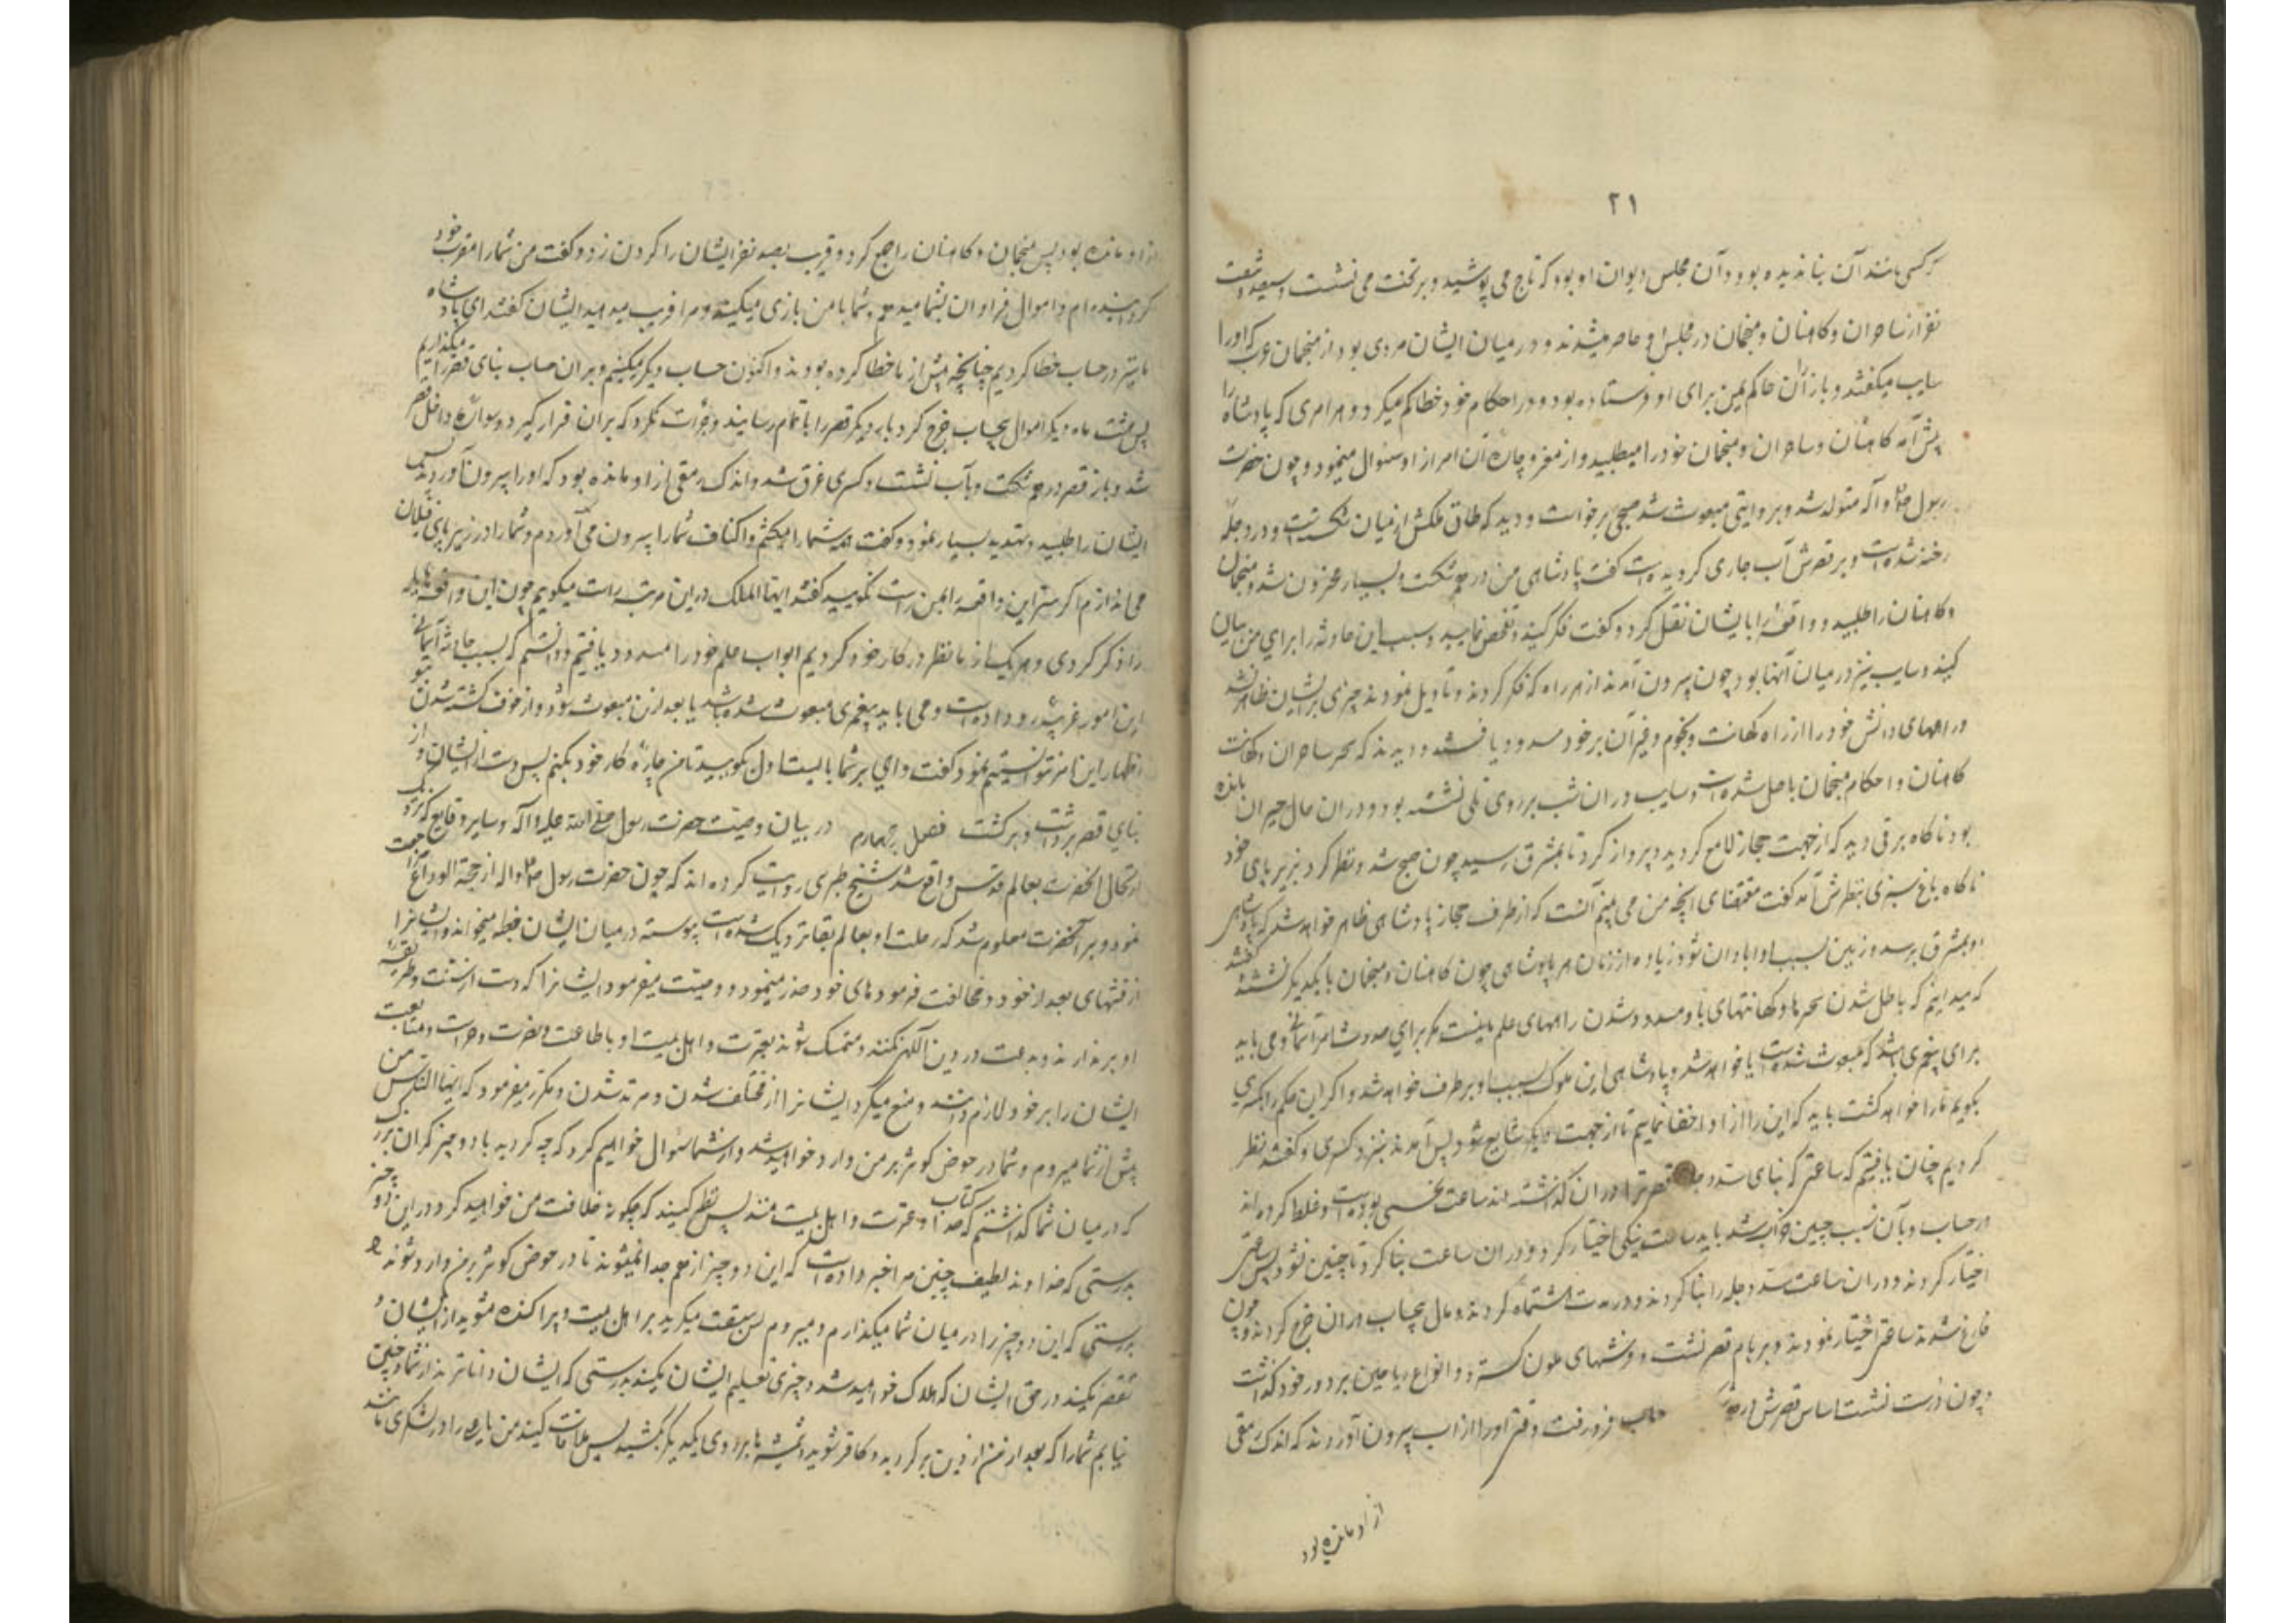 ٢١
که کسی مانند آن بنا ندیده بود و آن مجلس دیوان او بود که تاج می پوشید و بر تخت می نشست و سیصد و شصت
نفر از ساحران و کاهنان و منجمان در مجلس او حاضر میشدند و در میان ایشان مردی بود از منجمان عرب که او را
سایب میگفتند و باذان حاکم یمن برای او فرستاده بود و در احکام خود خطا کم میکرد و هر امری که پادشاه را
پیش آمد کاهنان و ساحران و منجمان خود را میطلبید و از مفر و چاره آن امر از او سئوال مینمود و چون حضرت
رسول ص و آله متولد شد و بروایتی مبعوث شد صبحی برخواست و دید که طاق ملکش از میان شکسته است و در دجله
رخنه شده است و بر قصرش آب جاری گردیده است گفت پادشاهی من در هم شکست و بسیار محزون شد و منجمان
و کاهنان را طلبید و واقعه را با یشان نقل کرد و گفت فکر کنید و تفحص نمایید و سبب این حادثه را برای من بیان
کنید و سایب نیز در میان آنها بود چون بیرون آمدند از هر راه که فکر کردند و تاویل نمودند چیزی بر ایشان ظاهر نشد
و راههای دانش خود را از راه کهانت و نجوم و غیر آن بر خود مسدود یافتند و دیدند که سحر ساحران و کهانت
کاهنان و احکام منجمان باطل شده است و سایب در ان شب بر روی تلی نشسته بود و در ان حال حیران مانده
بود ناگاه برقی دید که از جهت حجاز لامع گردید و پرواز کرد تا بمشرق رسید چون صبح شد و نظر کرد بزیر پای خود
ناگاه باغ سبزی بنظرش آمد گفت مقتضای آنچه من می بینم آنست که از طرف حجاز پادشاهی ظاهر خواهد شد که پادشاهی
او بمشرق برسد و زمین بسبب او ابادان شود زیاده از زمان هر پادشاهی چون کاهنان و منجمان با یکدیگر نشستند گفتند
که میدانیم که باطل شدن سحرها و کهانتهای ما و مسدود شدن راههای علم ما نیست مگر برای حدوث امر آسمانی و می باید
برای پیغمبری باشد که مبعوث شده است یا خواهد شد و پادشاهی این ملوک بسبب او برطرف خواهد شد و اگر این حکم را بکسری
بگوییم ما را خواهد کشت باید که این را از او اخفا نماییم تا از جهت دیگر شایع شود پس آمدند بنزد کسری و گفتند نظر
کردیم چنان یافتیم که ساعتی که بنای سد دجله قصر ترا در ان گذاشته اند ساعت نحسی بوده است و غلط کرده اند
در حساب و بآن سبب چنین خراب شد باید ساعت نیکی اختیار کرد و در ان ساعت بنا کرد تا چنین نشود پس ساعتی
اختیار کردند و در ان ساعت سد دجله را بنا کردند و در مدت هشت ماه کردند و مال بیحساب در ان خرج کردند و چون
فارغ شدند ساعتی اختیار نمودند و بر بام قصر نشست و فرشهای ملون گسترد و انواع ریاحین بر دور خود گذاشت
و چون درست نشست اساس قصرش در هم فرو رفت و وقتی او را از اب بیرون آوردند که اندک رمقی
از او مانده بود
از او مانده بود پس منجمان و کاهنان را جمع کرد و قریب بصد نفر ایشان را گردن زد و گفت من شما را مقرب خود
گردانیده ام و اموال فراوان بشما میدهم و شما با من بازی میکنید و مرا فریب میدهید ایشان گفتند ای پادشاه
ما نیز در حساب خطا کردیم چنانچه پیش از ما خطا کرده بودند و اکنون حساب دیگر میکنیم و بر ان حساب بنای قصر را میگذاریم
پس هشت ماه دیگر اموال بیحساب خرج کرد بار دیگر قصر را باتمام رسانید و جرأت نکرد که بر ان قرار گیرد و سواره داخل قصر
شد و باز قصر در هم شکست و بآب نشست و کسری غرق شد و اندک رمقی از او مانده بود که او را بیرون آوردند پس
ایشان را طلبید و تهدید بسیار نمود و گفت همه شما را میکشم و اکتاف شما را بیرون می آوردم و شما را در زیر پای فیلان
می اندازم اگر سر این واقعه را بمن راست نگویید گفتند ایها الملک در این مرتبه راست میگوییم چون این واقعه هایله
را ذکر کردی و هر یک از ما نظر در کار خود کردیم ابواب علم خود را مسدود یافتیم و دانستیم که بسبب حادثه آسمانی
این امور غریبه رو داده است و می باید پیغمبری مبعوث شده باشد یا بعد ازین مبعوث شود و از خوف کشته شدن بتو
اظهار این نمی توانستیم نمود گفت وای بر شما بایست اول بگویید تا من چاره کار خود بکنم پس دست از ایشان و از
بنای قصر برداشت و برگشت فصل چهارم در بیان وصیت حضرت رسول صلی الله علیه و آله و سایر وقایع که نزدیک
ارتحال آنحضرت بعالم قدس واقع شد شیخ طبرسی روایت کرده اند که چون حضرت رسول ص و اله از حجة الوداع مراجعت
نمود و بر آنحضرت معلوم شد که رحلت او بعالم بقا نزدیک شده است پیوسته در میان ایشان خطبه میخواند و ایشانرا
از فتنهای بعد از خود و مخالفت فرموده های خود حذر مینمود و وصیت میفرمود ایشانرا که دست از سنت و طریقه
او برندارند و بدعت در دین الهی نکنند و متمسک شوند بعترت و اهل بیت او باطاعت و نصرت و حراست و متابعت
ایشان را بر خود لازم دانند و منع میکرد ایشانرا از مختلف شدن و مرتد شدن و مکرر میفرمود که ایها الناس من
پیش از شما میروم و شما در حوض کوثر بر من وارد خواهید شد و از شما سئوال خواهیم کرد که چه کردید با دو چیز گران بزرگ
که در میان شما گذاشتم کتاب خدا و عترت و اهل بیت منند پس نظر کنید که چگونه خلافت من خواهید کرد در این دو چیز
بدرستی که خداوند لطیف چنین مرا خبر داده است که این دو چیز از هم جدا نمیشوند تا در حوض کوثر بر من وارد شوند
بدرستی که این دو چیز را در میان شما میگذارم و میروم پس سبقت میگیرید بر اهل بیت و پراکنده مشوید از ایشان و
تقصیر مکنید در حق ایشان که هلاک خواهید شد و چیزی تعلیم ایشان مکنید بدرستی که ایشان داناترند از شما و چنین
نیابم شما را که بعد از من از دین برگردید و کافر شوید و شمشیرها بر روی یکدیگر بکشید پس ملاقات کنید من را در لشکری مانند